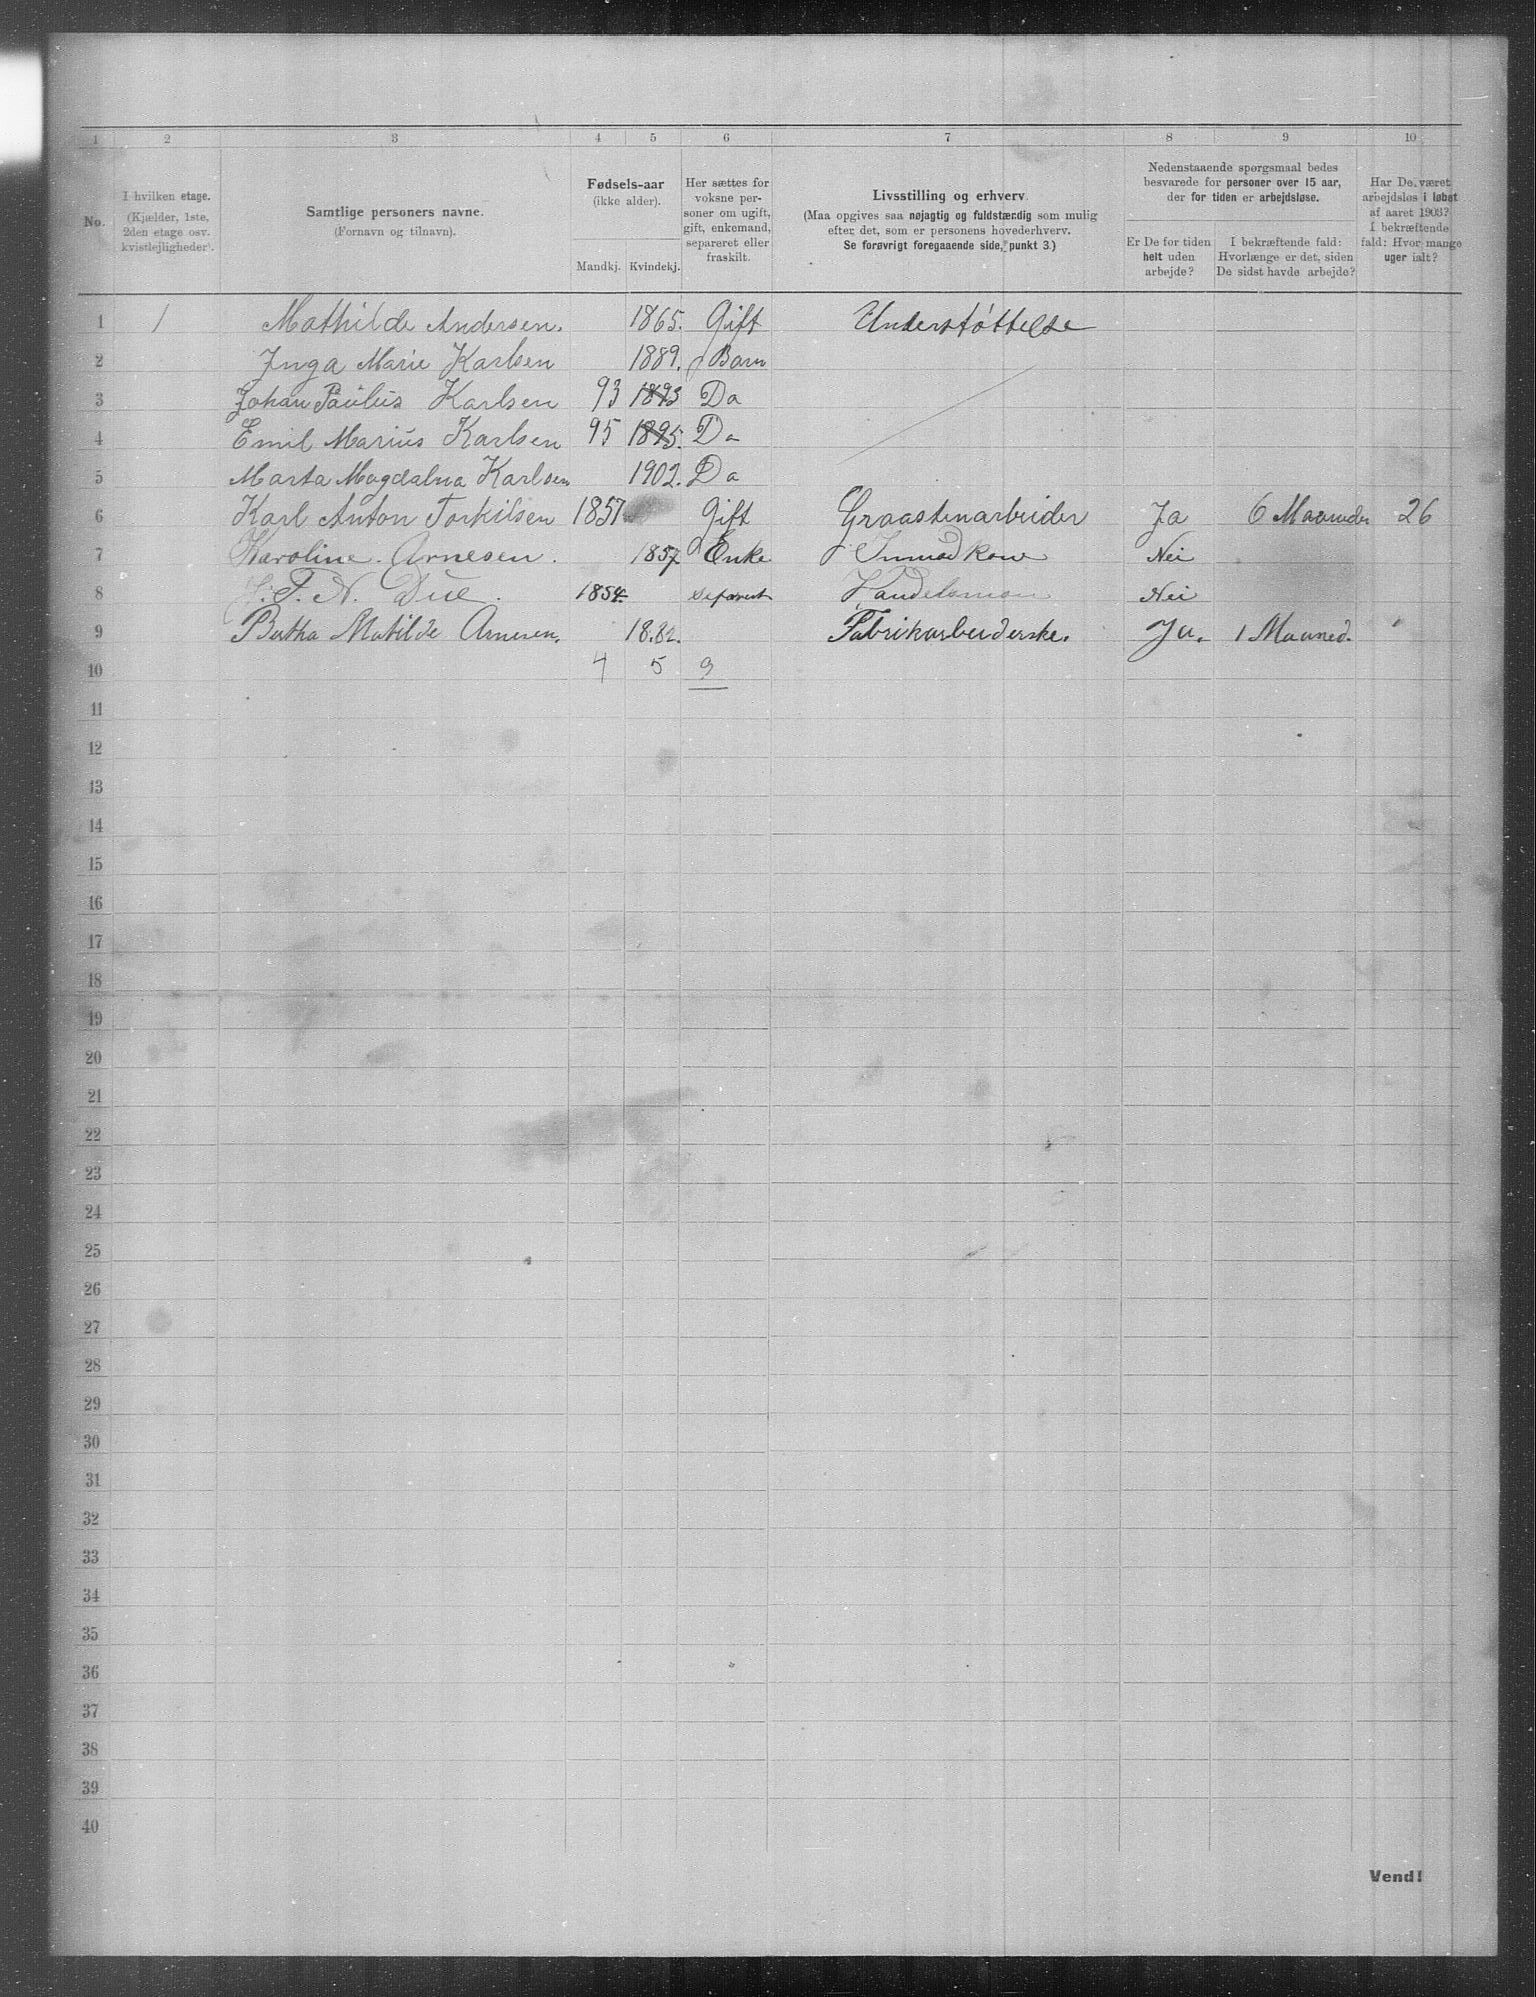 1 2 3 4 5 6 7 8 9 10
No.
I hvilken etage.
(Kjælder, 1ste,
2den etage osv.
kvistlejligheder).
Samtlige personers navne.
(Fornavn og tilnavn).
Fødsels-aar
(ikke alder).
Mandkj. Kvindekj.
Her sættes for
voksne per-
soner om ugift,
gift, enkemand,
separeret eller
fraskilt.
Livsstilling og erhverv
(Maa opgives saa nøjagtig og fuldstændig som mulig
efter det, som er personens hovederhverv.
Se forøvrigt foregaaende side, punkt 3.)
Nedenstaaende spørgsmaal bedes
besvarede for personer over 15 aar,
der for tiden er arbejdsløse.
Er De for tiden
helt uden
arbejde?
I bekræftende fald:
Hvorlænge er det, siden
De sidst havde arbejde?
Har De været
arbejdsløs i løbet
af aaret 1903?
I bekræftende
fald: Hvor mange
uger ialt?
1 1 Mathilde Andersen. 1865. Gift Understøttelse
2 Inga Marie Karlsen 1889. Barn
3 Johan Paulus Karlsen 93 1893 Do
4 Emil Marius Karlsen 95 1895. Do
5 Marta Magdalna Karlsen 1902. Do
6 Karl Anton Torkilsen 1857 Gift Graastenarbeider Ja 6 Maaneder 26
7 Karoline Arnesen. 1857 Enke Nei
8 T. N. Due. 1854. separert Handelsman Nei
9 Bertha Matilde Arnesen, 18.82. Fabrikarbeiderske. Ja. 1 Maaned.
10 4 5 9
11
12
13
14
15
16
17
18
19
20
21
22
23
24
25
26
27
28
29
30
31
32
33
34
35
36
37
38
39
40
Vend!